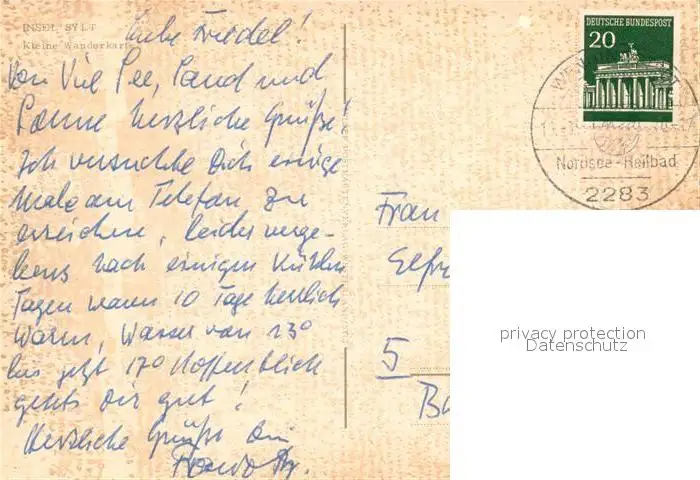 INSEL SYLT
Kleine Wanderkarte
Liebe Friedel!
Von Viel See, Sand und
Sonne herzliche Grüße!
Ich versuchte Dich einige
Male am Telefon zu
erreichen, leider verge-
bens. Nach einigen kühlen
Tagen waren 10 Tage herrlich
warm, Wasser von 13°
bis jetzt 17° Hoffentlich
gehts Dir gut!
Herzliche Grüße Dein
DEUTSCHE BUNDESPOST
20
Nordsee-Heilbad
2283
Frau
Elfr
5
Ba
privacy protection
Datenschutz